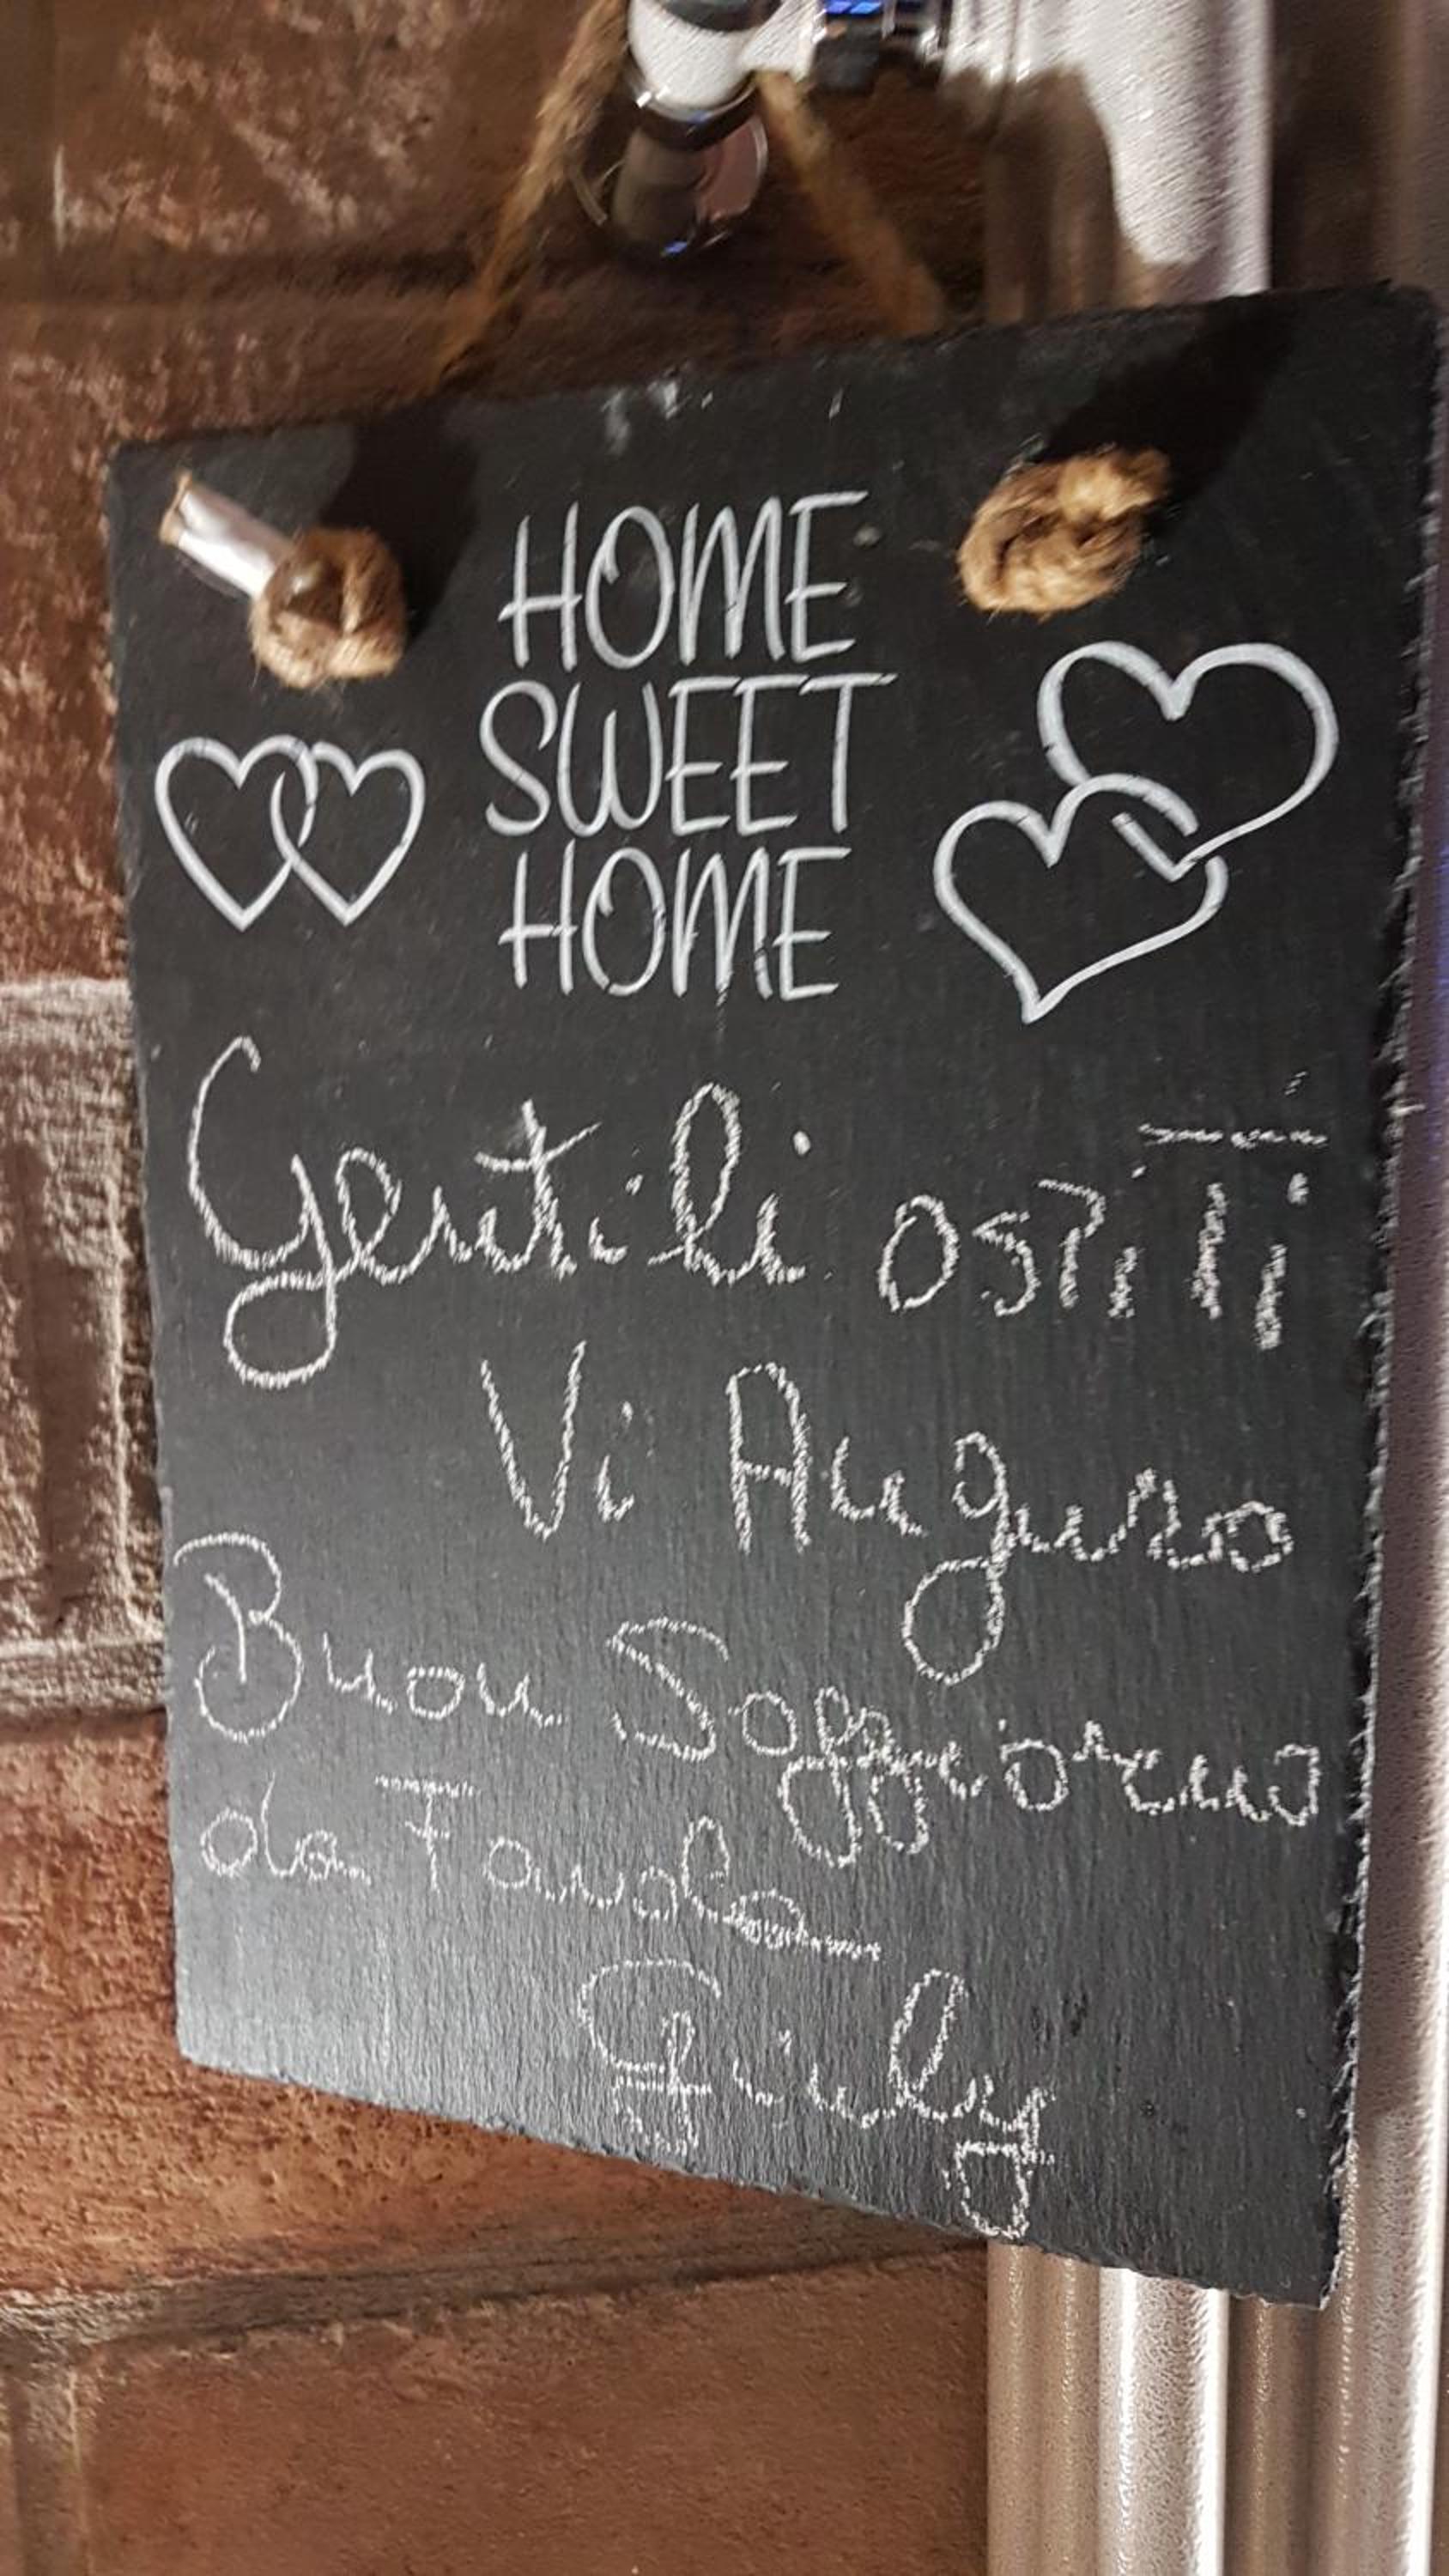 HOME
SWEET
HOME
Gentili ospiti
Vi Auguro
Buon Soggiorno
da Favola
Giuly